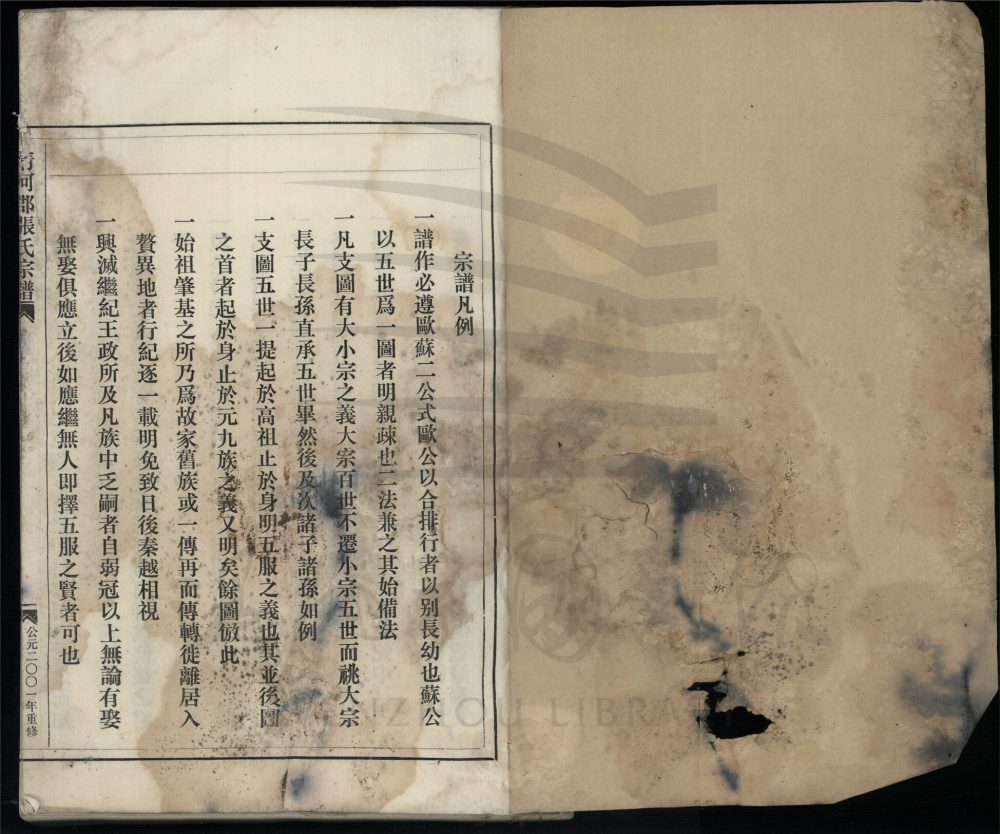 宗譜凡例
一譜作必遵歐蘇二公式歐公以合排行者以别長幼也蘇公
以五世爲一圖者明親疎也二法兼之其始備法
一凡支圖有大小宗之義大宗百世不遷小宗五世而祧大宗
長子長孫直承五世畢然後及次諸子諸孫如例
一支圖五世一提起於高祖止於身明五服之義也其並後圖
之首者起於身止於元九族之義又明矣餘圖倣此
一始祖肇基之所乃爲故家舊族或一傳再而傳轉徙離居入
贅異地者行紀逐一載明免致日後秦越相視
一興滅繼紀王政所及凡族中乏嗣者自弱冠以上無論有娶
無娶俱應立後如應繼無人即擇五服之賢者可也
河郡張氏宗譜
一
公元二〇〇一年重修
WENZHOU LIBRARY